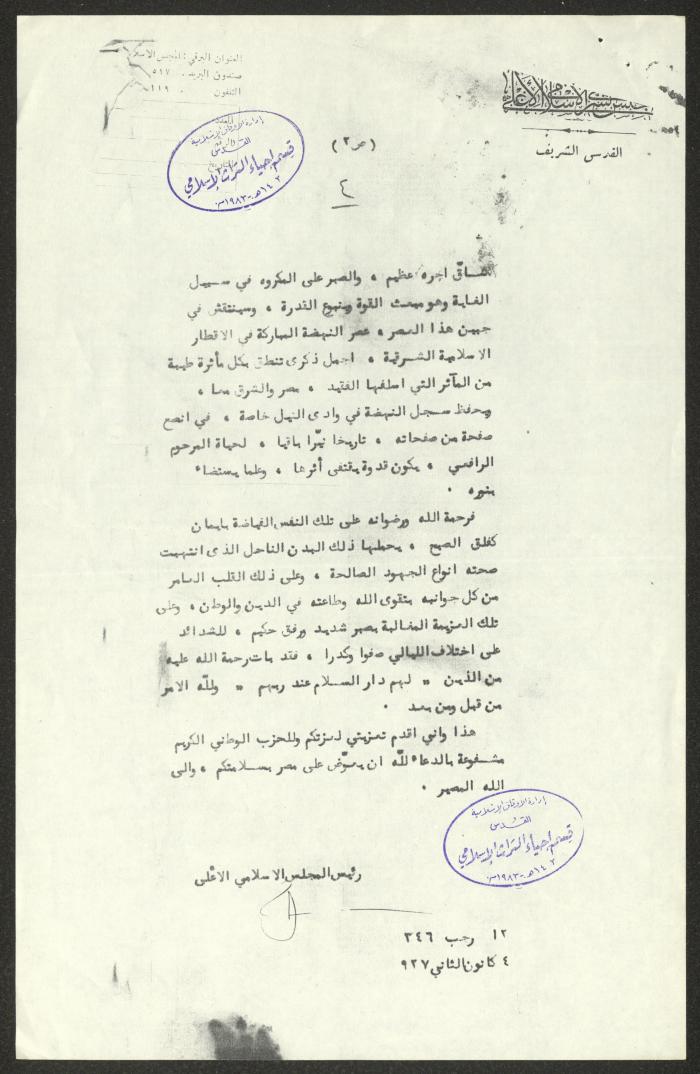 المجلس الشرعي الإسلامي الأعلى
القدس الشريف
العنوان البرقي: المجلس الاسلا
صندوق البريد. ٥١٧
التلفون . ١١٩
إدارة الأوقاف الإسلامية
القدس
قسم إحياء التراث الإسلامي
١٤٠٣هـ-١٩٨٣م
(ص٢)
٤
شاقّ اجره عظيم ، والصبر على المكروه في سبيل
الغاية وهو مبعث القوة وينبوع القدرة ، وسينتقش في
جبين هذا العصر ، عصر النهضة المباركة في الاقطار
الاسلامية الشرقية ، اجمل ذكرى تنطق بكل مأثرة طيبة
من المآثر التي اسلفها الفقيد ، مصر والشرق معا ،
ويحفظ سجل النهضة في وادى النيل خاصة ، في انصع
صفحة من صفحاته ، تاريخا نيّرا باقيا ، لحياة المرحوم
الرافعي ، يكون قدوة يقتفى أثرها ، وعلما يستضاء
بنوره .
فرحمة الله ورضوانه على تلك النفس الفياضة بايمان
كفلق الصبح ، يحملها ذلك البدن الناحل الذى انتهبت
صحته انواع الجهود الصالحة ، وعلى ذلك القلب العامر
من كل جوانبه بتقوى الله وطاعته في الدين والوطن ، وعلى
تلك العزيمة المغالبة بصبر شديد ورفق حكيم ، للشدائد
على اختلاف الليالي صفوا وكدرا ، فقد بات رحمة الله عليه
من الذين " لهم دار السلام عند ربهم " ولله الامر
من قبل ومن بعد .
هذا واني اقدم تعزيتي لعزتكم وللحزب الوطني الكريم
مشفوعة بالدعاء لله ان يعوّض على مصر بسلامتكم ، والى
الله المصير .
إدارة الأوقاف الإسلامية
القدس
قسم إحياء التراث الإسلامي
١٤٠٣هـ-١٩٨٣م
رئيس المجلس الاسلامي الاعلى
١٢ رجب ٣٤٦
٤ كانون الثاني ٩٢٧